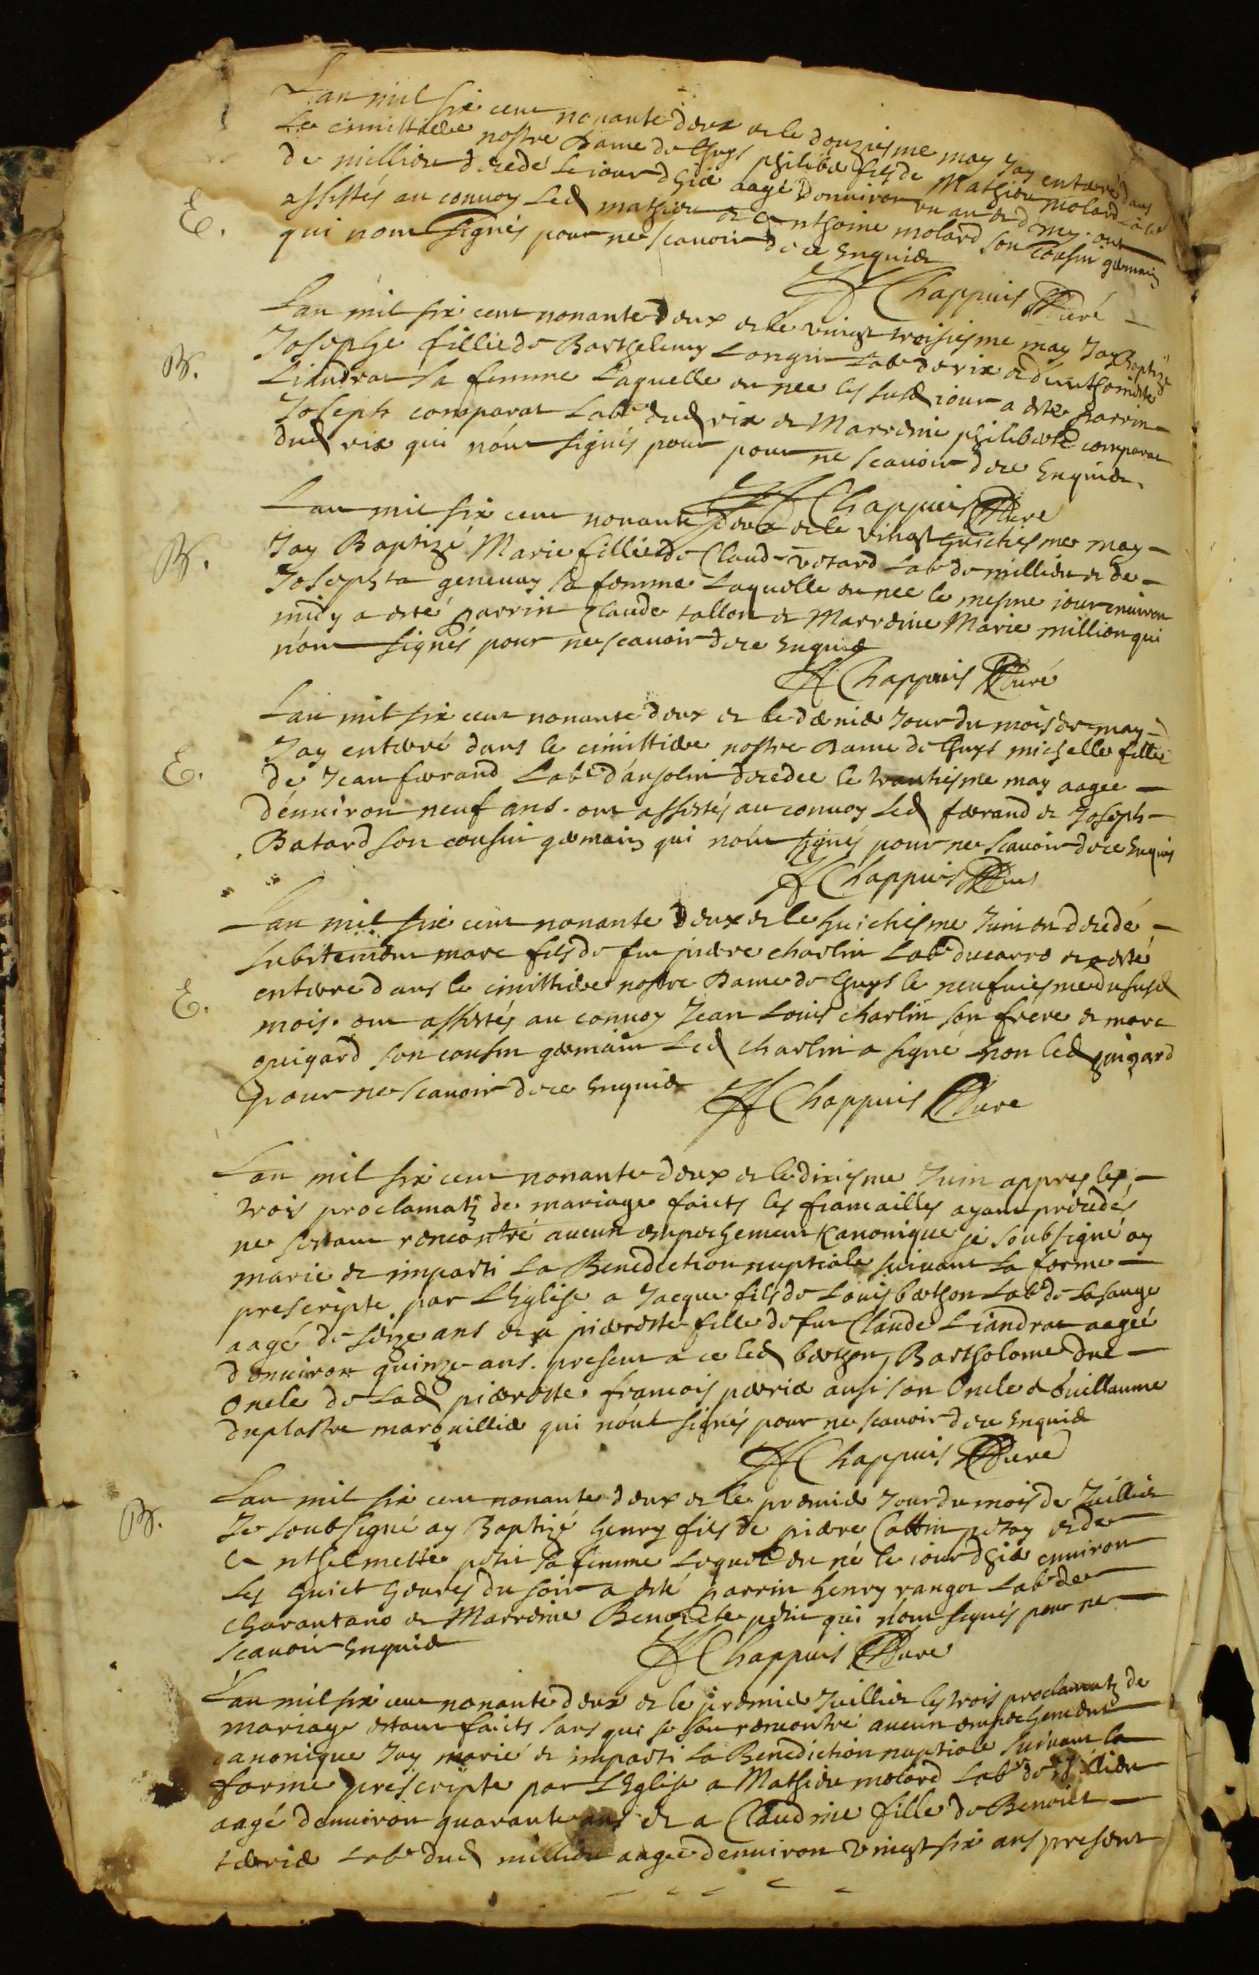 Lan mil six cent nonante deux et le douziesme may Jay enterré dans
Le cimittiere nostre Dame de Guys philibe fils de Mathieu Molard
de million decedé le iour dhier aagé denviron un an et demy. ont
E. assistés au convoy Led mathieu et Anthoine molard son cousin germain
qui nont signés pour ne scavoir de ce Enquis
Chappuis Curé
Lan mil six cent nonante deux et le vingt troisiesme may Jay Baptizé
B. Josephe fillie de Barthelemy Longin Lab de vix et danthoinette
Liandrat sa femme Laquelle est nee les susd iour a esté parrin
Joseph comparat Lab dud vix et Marreine philiberte comparat
dud vix qui nont signés pour pour ne scavoir de ce Enquis.
Chappuis Curé
Lan mil six cent nonante deux et le vingt huictiesme may
B. Jay Baptizé Marie fillie de Claud vetard Lab de million et de
Josephta genevay sa femme Laquelle est nee le mesme iour environ
midy a esté parrin Claude tallon et Marreine Marie million qui
nont signés pour ne scavoir de ce Enquis
Chappuis Curé
Lan mil six cent nonante deux et le dernier Jour du mois de may
Jay enterré dans le cimittiere nostre Dame de Guys michelle fillie
E. de Jean ferrand Lab dansolin decedee le trantiesme may aagee
denviron neuf ans. ont assistés au convoy Led ferrand et Joseph
Batard son cousin germain qui nont signés pour ne scavoir de ce Enquis
Chappuis Curé
Lan mil six cent nonante deux et le huictiesme Juin est decedé
subitement marc fils de feu pierre charlin Lab ducarre et a esté
E. enterré dans le cimittiere nostre Dame de Guys le neufviesme du susd
mois. ont assistés au convoy Jean Louis charlin son frere et marc
guigard son cousin germain Led charlin a signé non led guigard
pour ne scavoir de ce Enquis Chappuis Curé
Lan mil six cent nonante deux et le dixiesme Juin appres les
trois proclamatz de mariage faicts les fiancailles ayant procedés
ne sestant rencontré aucun empechement Kanonique je soubsigné ay
marie et imparti La Benediction nuptiale suivant la forme
prescripte par LEglise a Jacque fils de Louis berthon Lab de Lasauge
aagé de seize ans et a pierrette fille de feu Claude Liandrat aagée
denviron quinze ans. present a ce led berthon, Bartholome
oncle de Lad pierrette francois perrier ausi son Oncle et Guillaume
duplastre marguillier qui nont signés pour ne scavoir de ce Enquis
Chappuis Curé
B. Lan mil six cent nonante deux et le premier Jour du mois de Juillier
Je soubsigné ay Baptizé henry fils de pierre Cottin petay et de
Anthelmette petit sa femme Lequel est né le iour dhier environ
Les huict heures du soir a esté parrin henry rangot Lab de
Charantano et Marreine Benoicte petit qui nont signés pour ne
scavoir Enquis Chappuis Curé
Lan mil six cent nonante deux et le premier Juillier les trois proclamatz de
mariage estant faicts sans qui se soit rencontré aucun empechement
canonique Jay marié et imparti La Benediction nuptiale suivant la
forme prescripte par LEglise a Mathieu molard Lab de Millieu
aagé denviron quarante ans et a Claudine fille de Benoict
terrier Lab dud million aagee denviron vingt six ans present